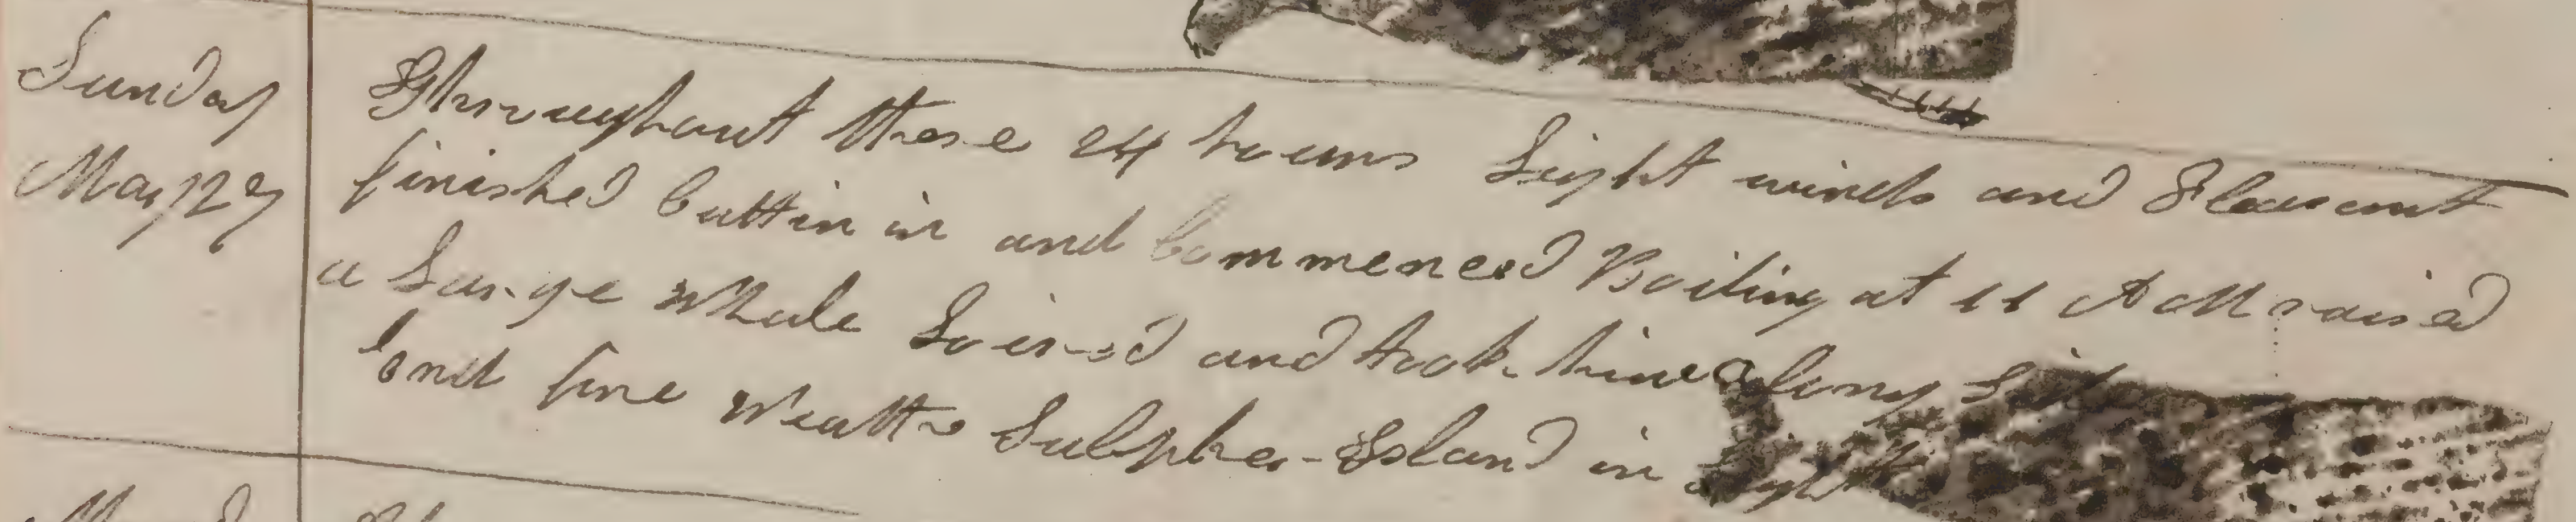 Sunday
May 27
Throughout these 24 hours Light winds and Pleasant
finished Cuttin in and Commenced Boiling at 11 A M raised
a Large Whale Loired and took him along Side
End fine Weather Sulpher Island in Sight